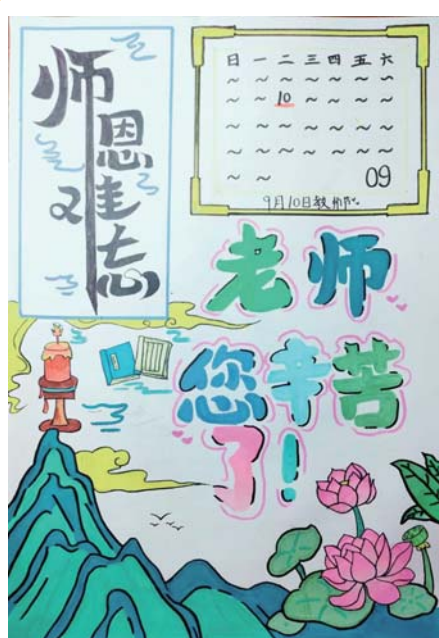 师恩难忘
日 一 二 三 四 五 六
10
09
9月10日教师节
老师
您辛苦
了!